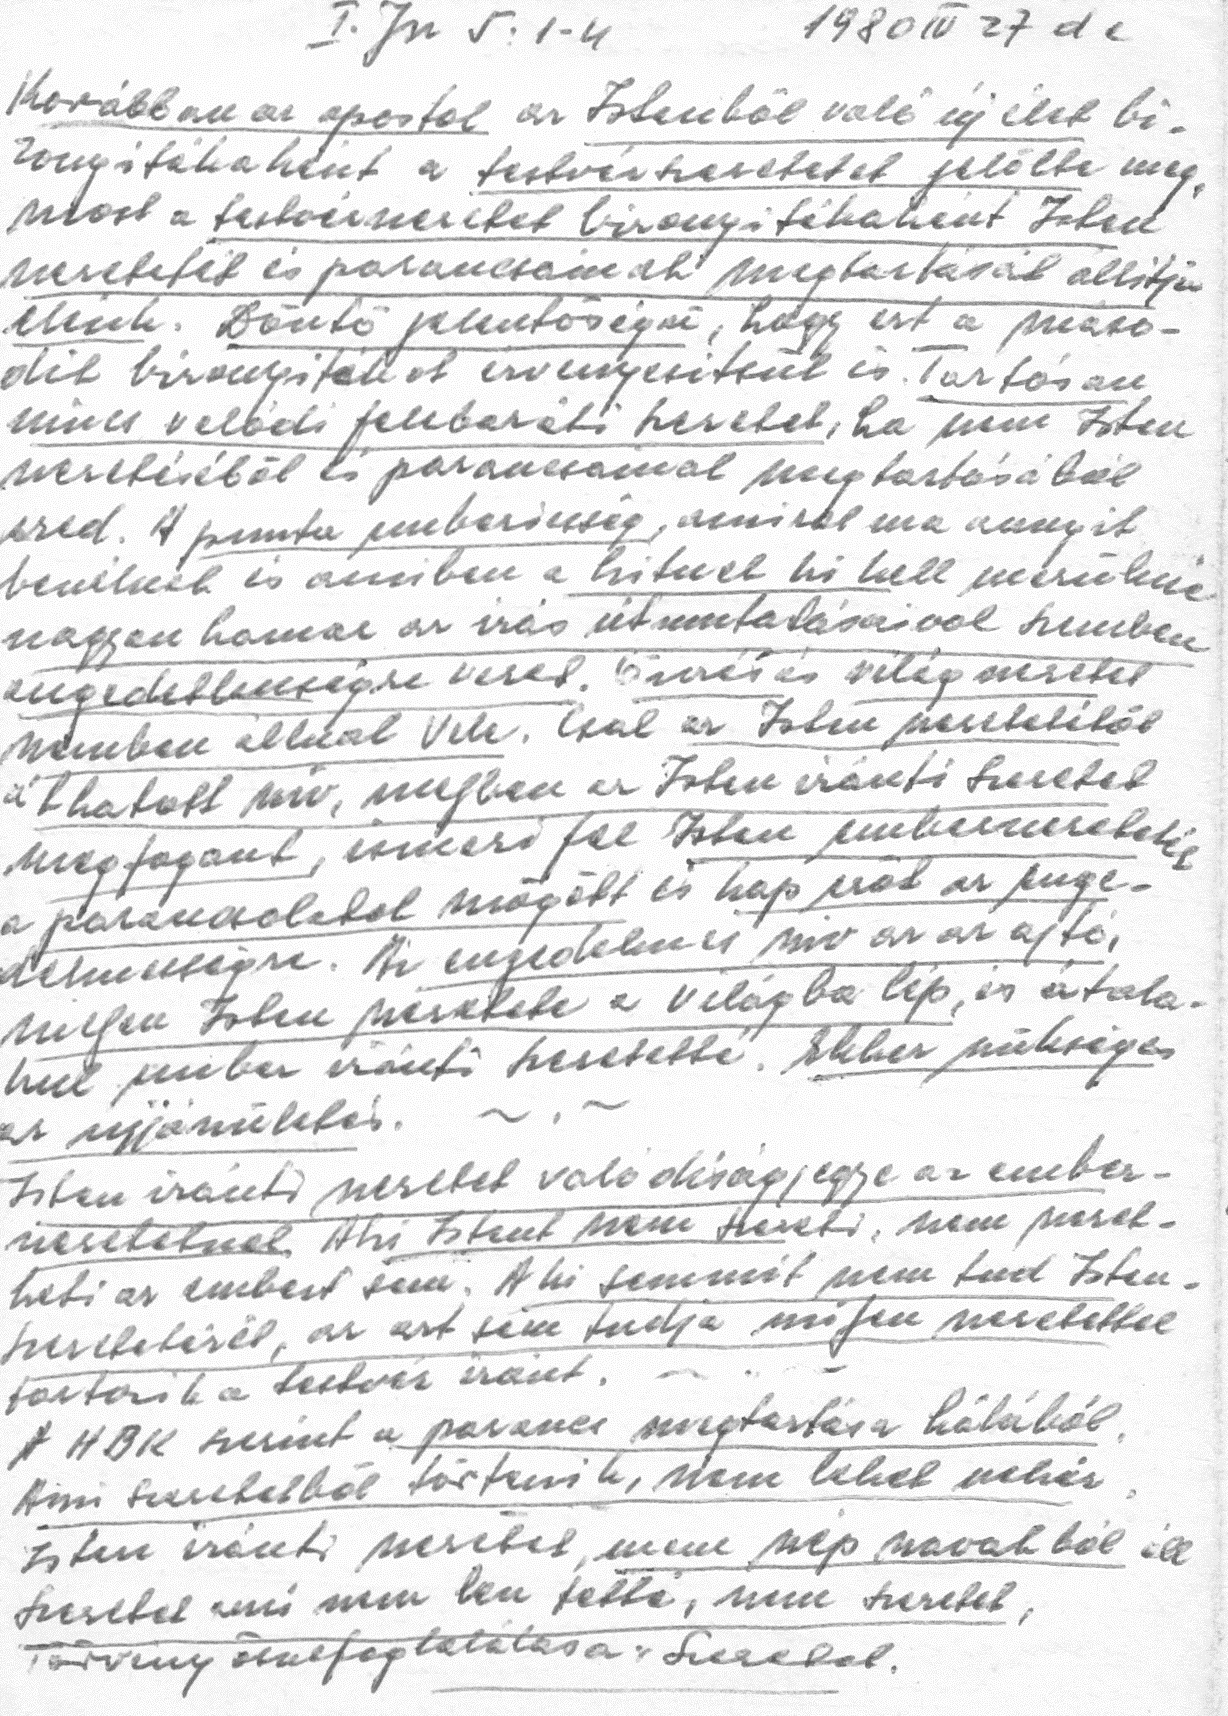 I. Jn 5: 1-4 1980 IV 27 de
Korábban az apostol az Istenből való új élet bi-
zonyítékaként a testvérszeretetet jelölte meg,
most a testvérszeretet bizonyítékaként Isten
szeretetét és parancsainak megtartását állítja
elénk. Döntő jelentőségű, hogy ezt a máso-
dik bizonyítékot érvényesítsük is. Tartósan
nincs valódi felebaráti szeretet, ha nem Isten
szeretetéből és parancsainak megtartásából
ered. A puszta emberiesség, amiről ma annyit
beszélnek és amiben a hitnek ki kell merülnie
nagyon hamar az írás útmutatásaival szemben
engedetlenségre vezet. Önzés és világ szeretet
szemben állnak Vele. Csak az Isten szeretetétől
áthatott szív, melyben az Isten iránti szeretet
megfogant, ismeri fel Isten emberszeretetét
a parancsolatok mögött és kap erőt az enge-
delmességre. Az engedelmes szív az az ajtó,
melyen Isten szeretete a világba lép, és átala-
kul ember iránti szeretetté. Ehhez szükséges
az újjászületés. ~ . ~
Isten iránti szeretet valódiságjegye az ember-
szeretetnek. Aki Istent nem szereti, nem szeret-
heti az embert sem. Aki semmit nem tud Isten-
szeretetéről, az azt sem tudja milyen szeretettel
tartozik a testvér iránt.
A HBK szerint a parancs megtartása hálából.
Ami szeretetből történik, nem lehet nehéz.
Isten iránti szeretet, nem szép szavakból áll
Szeretet ami nem lesz tetté, nem szeretet,
Törvény összefoglalása: Szeretet.